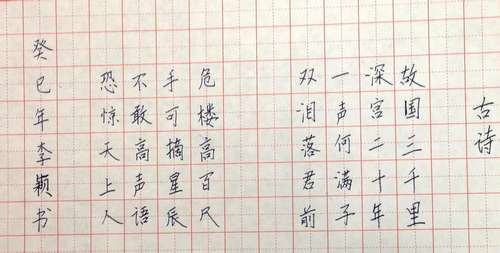 古诗
故国三千里
深宫二十年
一声何满子
双泪落君前
危楼高百尺
手可摘星辰
不敢高声语
恐惊天上人
癸巳年李颖书